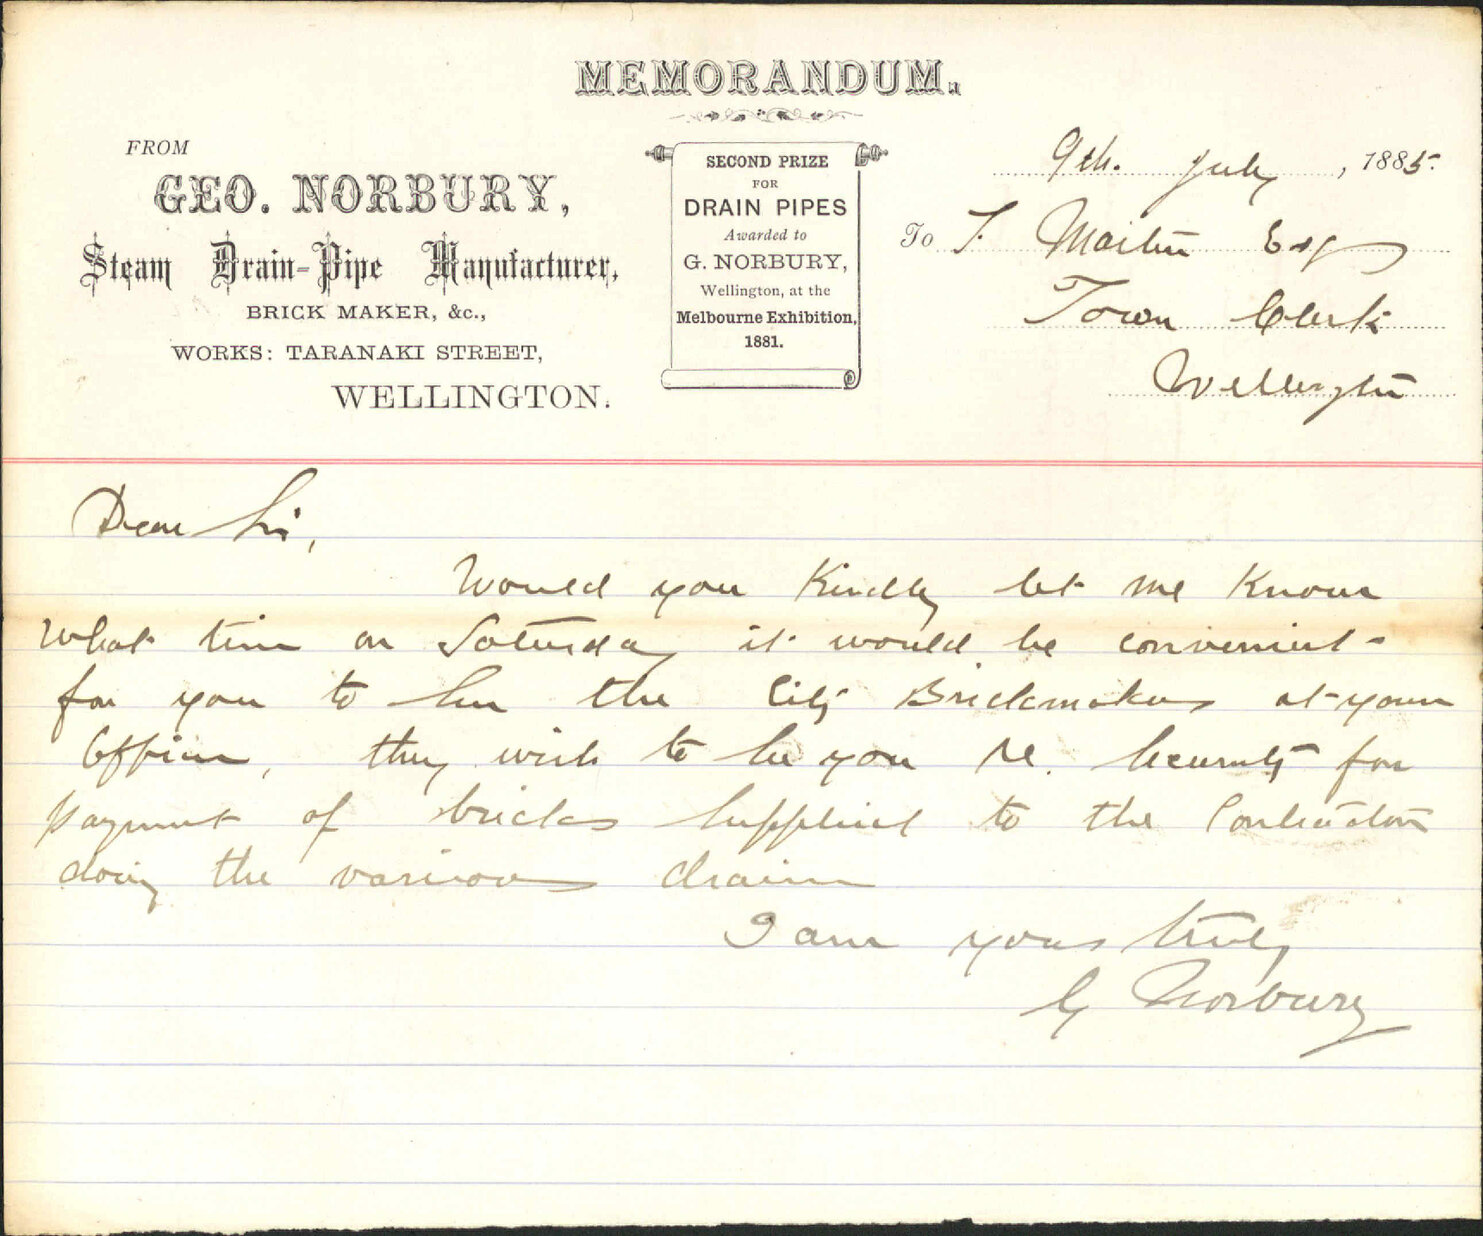 MEMORANDUM.
FROM
GEO. NORBURY,
Steam Drain-Pipe Manufacturer,
BRICK MAKER, &c.,
WORKS: TARANAKI STREET,
WELLINGTON.
SECOND PRIZE
FOR
DRAIN PIPES
Awarded to
G. NORBURY,
Wellington, at the
Melbourne Exhibition,
1881.
9th. July, 1885.
To Martin Esq
Town Clerk
Wellington
Dear Sir,
Would you Kindly let me Know
What time on Saturday it would be convenient
for you to see the City Brickmakers at your
Office, they wish to see you re. Security for
payment of bricks supplied to the Contractors
doing the various drains
I am yours truly
G Norbury